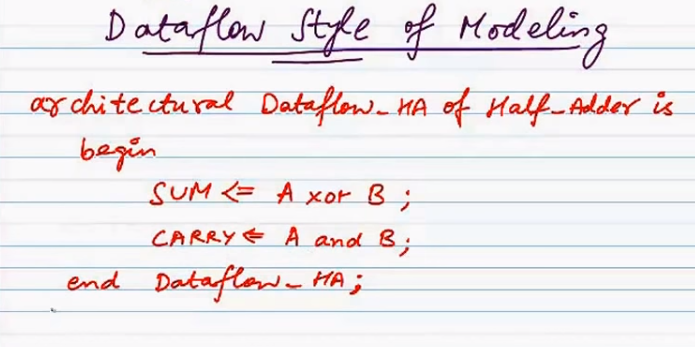 Dataflow Style of Modeling
architectural Dataflow_HA of Half_Adder is
begin
SUM <= A xor B ;
CARRY <= A and B ;
end Dataflow_HA ;